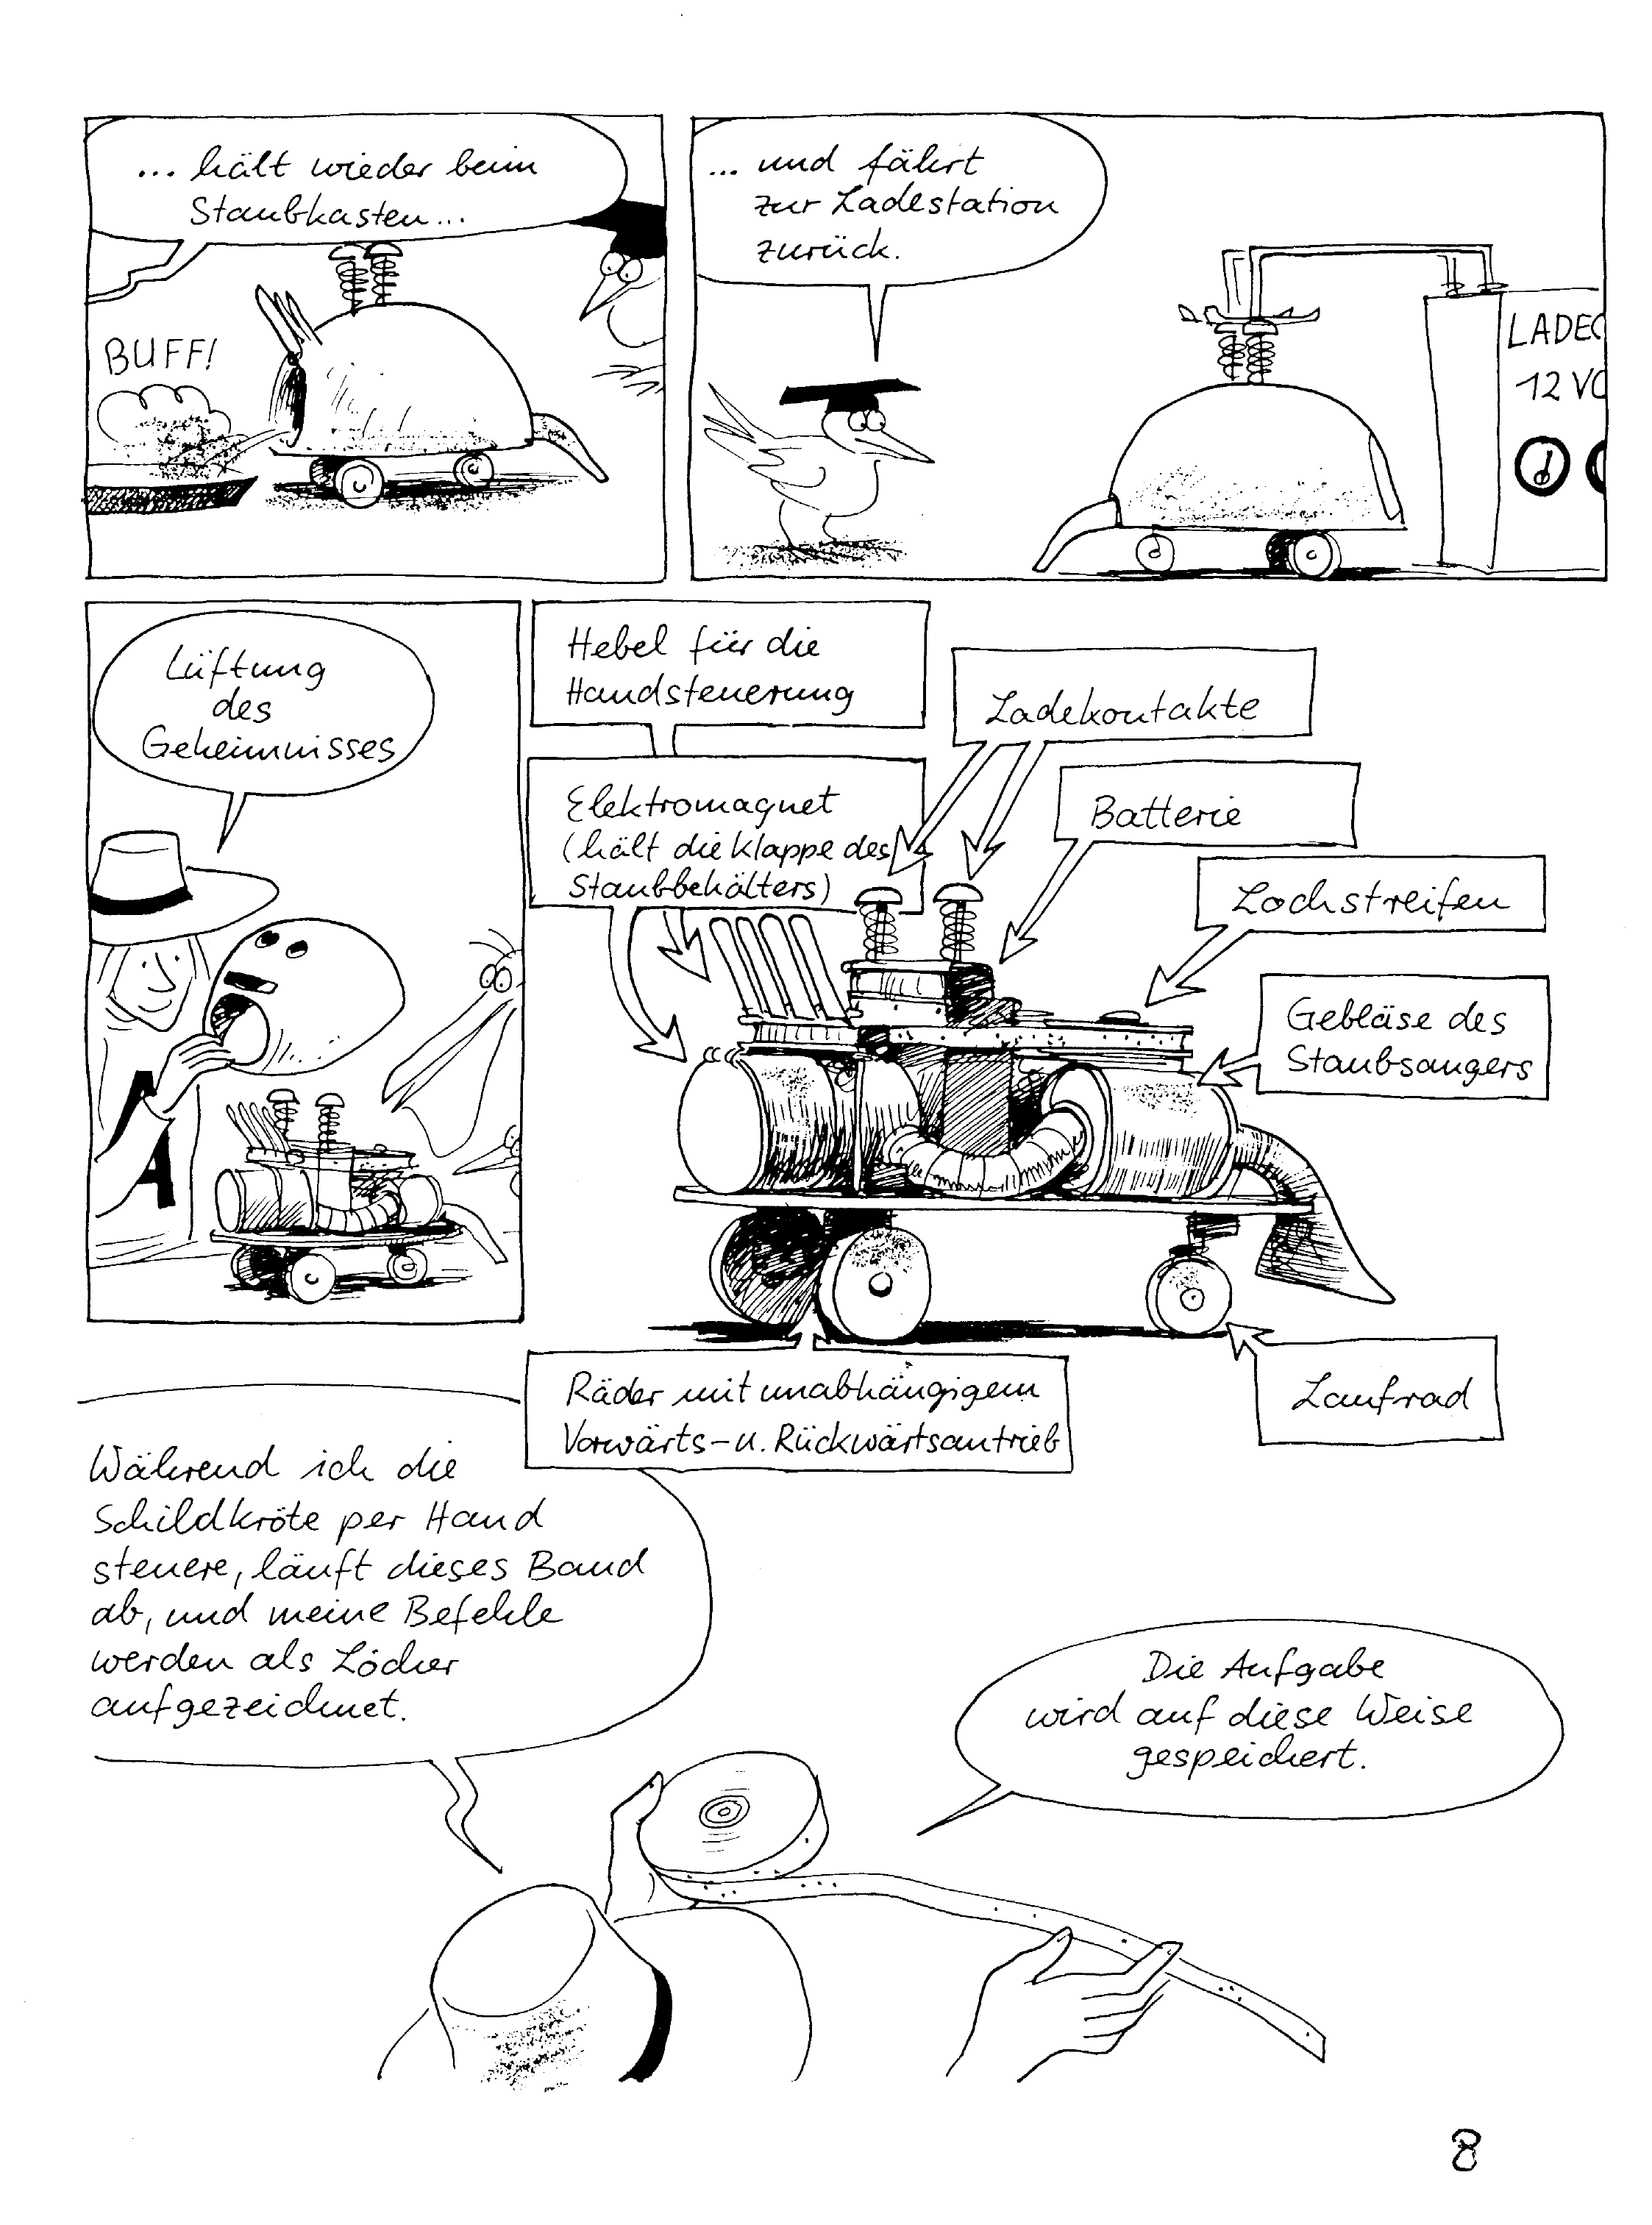 ... hält wieder beim
Staubkasten...
BUFF!
... und fährt
zur Ladestation
zurück.
LADEC
12 VO
Lüftung
des
Geheimnisses
A
Hebel für die
Handsteuerung
Elektromagnet
(hält die Klappe des
Staubbehälters)
Ladekontakte
Batterie
Lochstreifen
Gebläse des
Staubsaugers
Räder mit unabhängigem
Vorwärts- u. Rückwärtsantrieb
Laufrad
Während ich die
Schildkröte per Hand
steuere, läuft dieses Band
ab, und meine Befehle
werden als Löcher
aufgezeichnet.
Die Aufgabe
wird auf diese Weise
gespeichert.
8